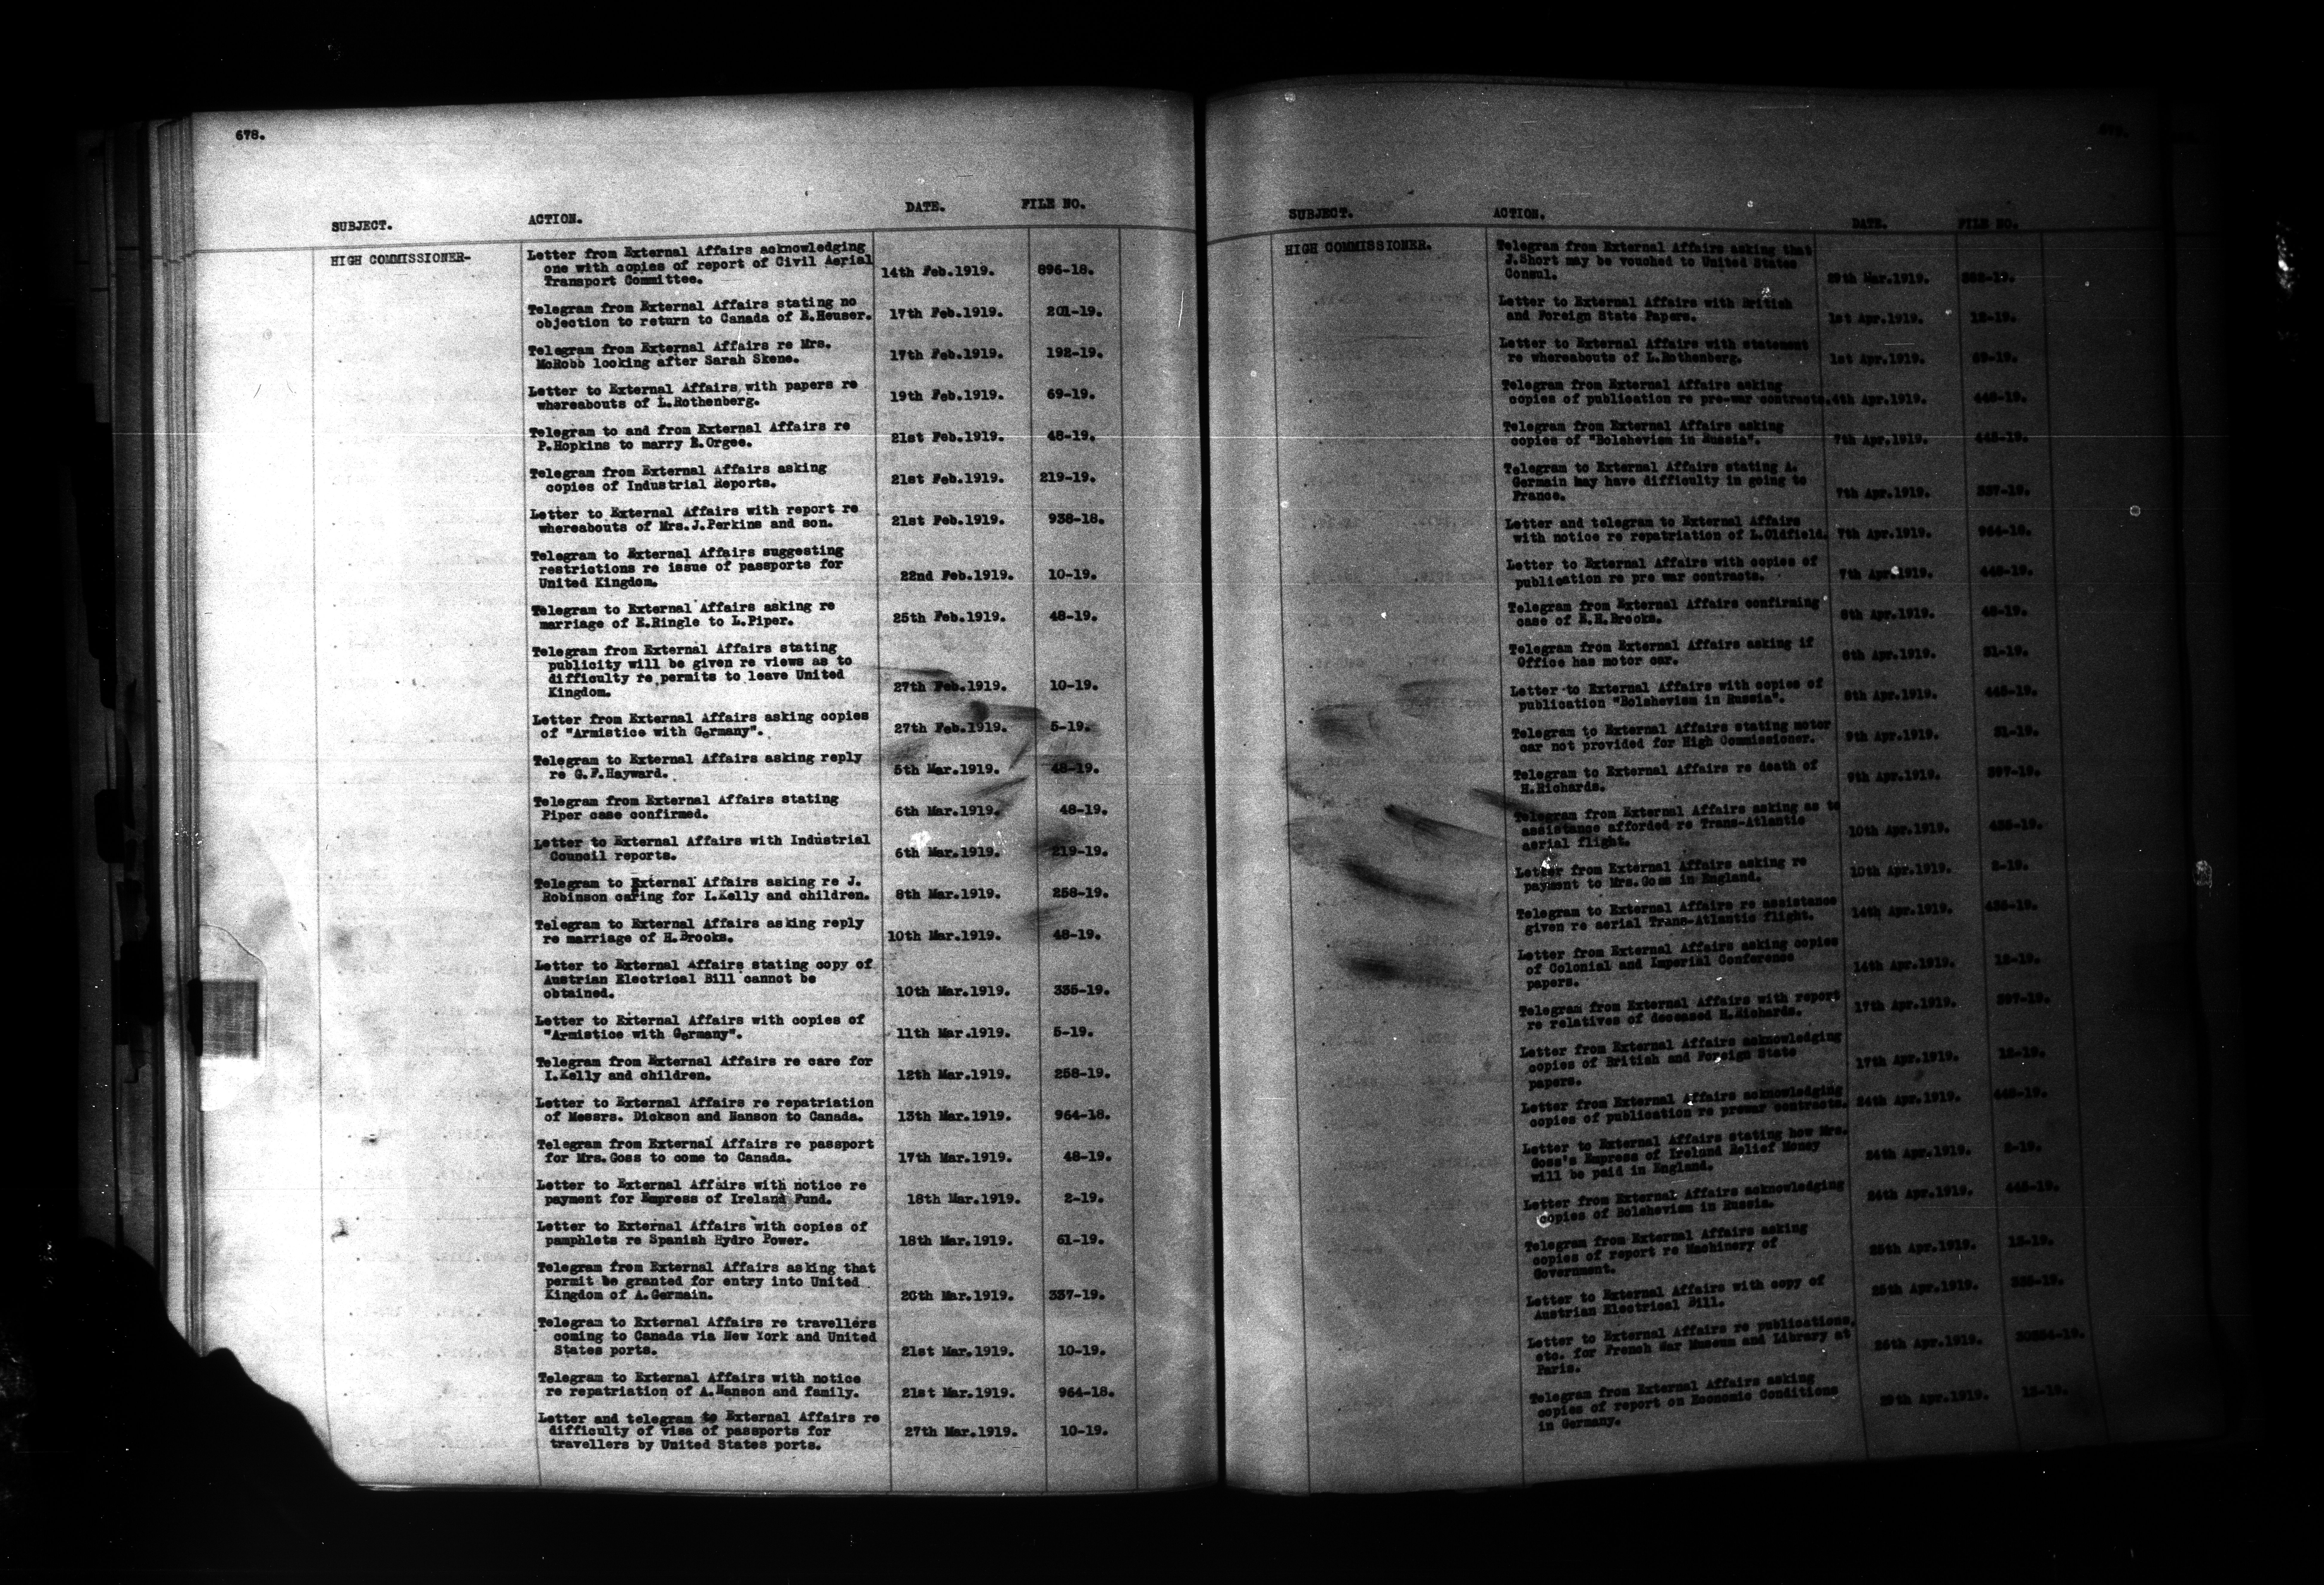 678.
SUBJECT. ACTION. DATE. FILE NO.
HIGH COMMISSIONER- Letter from External Affairs acknowledging
one with copies of report of Civil Aerial
Transport Committee. 14th Feb.1919. 896-18.
Telegram from External Affairs stating no
objection to return to Canada of E.Heuser. 17th Feb.1919. 201-19.
Telegram from External Affairs re Mrs.
McRobb looking after Sarah Skene. 17th Feb.1919. 192-19.
Letter to External Affairs with papers re
whereabouts of L.Rothenberg. 19th Feb.1919. 69-19.
Telegram to and from External Affairs re
P.Hopkins to marry E.Orgee. 21st Feb.1919. 48-19.
Telegram from External Affairs asking
copies of Industrial Reports. 21st Feb.1919. 219-19.
Letter to External Affairs with report re
whereabouts of Mrs.J.Perkins and son. 21st Feb.1919. 938-18.
Telegram to External Affairs suggesting
restrictions re issue of passports for
United Kingdom. 22nd Feb.1919. 10-19.
Telegram to External Affairs asking re
marriage of E.Ringle to L.Piper. 25th Feb.1919. 48-19.
Telegram from External Affairs stating
publicity will be given re views as to
difficulty re permits to leave United
Kingdom. 27th Feb.1919. 10-19.
Letter from External Affairs asking copies
of "Armistice with Germany". 27th Feb.1919. 5-19.
Telegram to External Affairs asking reply
re G.F.Hayward. 5th Mar.1919. 48-19.
Telegram from External Affairs stating
Piper case confirmed. 6th Mar.1919. 48-19.
Letter to External Affairs with Industrial
Council reports. 6th Mar.1919. 219-19.
Telegram to External Affairs asking re J.
Robinson caring for I.Kelly and children. 8th Mar.1919. 258-19.
Telegram to External Affairs asking reply
re marriage of H.Brooks. 10th Mar.1919. 48-19.
Letter to External Affairs stating copy of
Austrian Electrical Bill cannot be
obtained. 10th Mar.1919. 335-19.
Letter to External Affairs with copies of
"Armistice with Germany". 11th Mar.1919. 5-19.
Telegram from External Affairs re care for
I.Kelly and children. 12th Mar.1919. 258-19.
Letter to External Affairs re repatriation
of Messrs. Dickson and Hanson to Canada. 13th Mar.1919. 964-18.
Telegram from External Affairs re passport
for Mrs.Goss to come to Canada. 17th Mar.1919. 48-19.
Letter to External Affairs with notice re
payment for Empress of Ireland Fund. 18th Mar.1919. 2-19.
Letter to External Affairs with copies of
pamphlets re Spanish Hydro Power. 18th Mar.1919. 61-19.
Telegram from External Affairs asking that
permit be granted for entry into United
Kingdom of A.Germain. 20th Mar.1919. 337-19.
Telegram to External Affairs re travellers
coming to Canada via New York and United
States ports. 21st Mar.1919. 10-19.
Telegram to External Affairs with notice
re repatriation of A.Hanson and family. 21st Mar.1919. 964-18.
Letter and telegram to External Affairs re
difficulty of visa of passports for
travellers by United States ports. 27th Mar.1919. 10-19.
SUBJECT. ACTION. DATE. FILE NO.
HIGH COMMISSIONER. Telegram from External Affairs asking that
J.Short may be vouched to United States
Consul. 29th Mar.1919.
Letter to External Affairs with British
and Foreign State Papers. 1st Apr.1919. 12-19.
Letter to External Affairs with statement
re whereabouts of L.Rothenberg. 1st Apr.1919. 69-19.
Telegram from External Affairs asking
copies of publication re pre-war contracts. 4th Apr.1919. 448-19.
Telegram from External Affairs asking
copies of "Bolshevism in Russia". 7th Apr.1919. 445-19.
Telegram to External Affairs stating A.
Germain may have difficulty in going to
France. 7th Apr.1919. 337-19.
Letter and telegram to External Affairs
with notice re repatriation of L.Oldfield. 7th Apr.1919. 964-18.
Letter to External Affairs with copies of
publication re pre war contracts. 7th Apr.1919. 448-19.
Telegram from External Affairs confirming
case of E.H.Brooks. 8th Apr.1919. 48-19.
Telegram from External Affairs asking if
Office has motor car. 8th Apr.1919. 31-19.
Letter to External Affairs with copies of
publication "Bolshevism in Russia". 8th Apr.1919. 445-19.
Telegram to External Affairs stating motor
car not provided for High Commissioner. 9th Apr.1919. 31-19.
Telegram to External Affairs re death of
H.Richards. 9th Apr.1919. 397-19.
Telegram from External Affairs asking as to
assistance afforded re Trans-Atlantic
aerial flight. 10th Apr.1919. 435-19.
Letter from External Affairs asking re
payment to Mrs.Goss in England. 10th Apr.1919. 2-19.
Telegram to External Affairs re assistance
given re aerial Trans-Atlantic flight. 14th Apr.1919. 435-19.
Letter from External Affairs asking copies
of Colonial and Imperial Conference
papers. 14th Apr.1919. 12-19.
Telegram from External Affairs with report
re relatives of deceased H.Richards. 17th Apr.1919. 397-19.
Letter from External Affairs acknowledging
copies of British and Foreign State
papers. 17th Apr.1919. 12-19.
Letter from External Affairs acknowledging
copies of publication re prewar contracts. 24th Apr.1919. 448-19.
Letter to External Affairs stating how Mrs.
Goss's Empress of Ireland Relief Money
will be paid in England. 24th Apr.1919. 2-19.
Letter from External Affairs acknowledging
copies of Bolshevism in Russia. 24th Apr.1919. 445-19.
Telegram from External Affairs asking
copies of report re Machinery of
Government. 25th Apr.1919. 12-19.
Letter to External Affairs with copy of
Austrian Electrical Bill. 25th Apr.1919. 335-19.
Letter to External Affairs re publications,
etc. for French War Museum and Library at
Paris. 26th Apr.1919.
Telegram from External Affairs asking
copies of report on Economic Conditions
in Germany. 29th Apr.1919. 12-19.